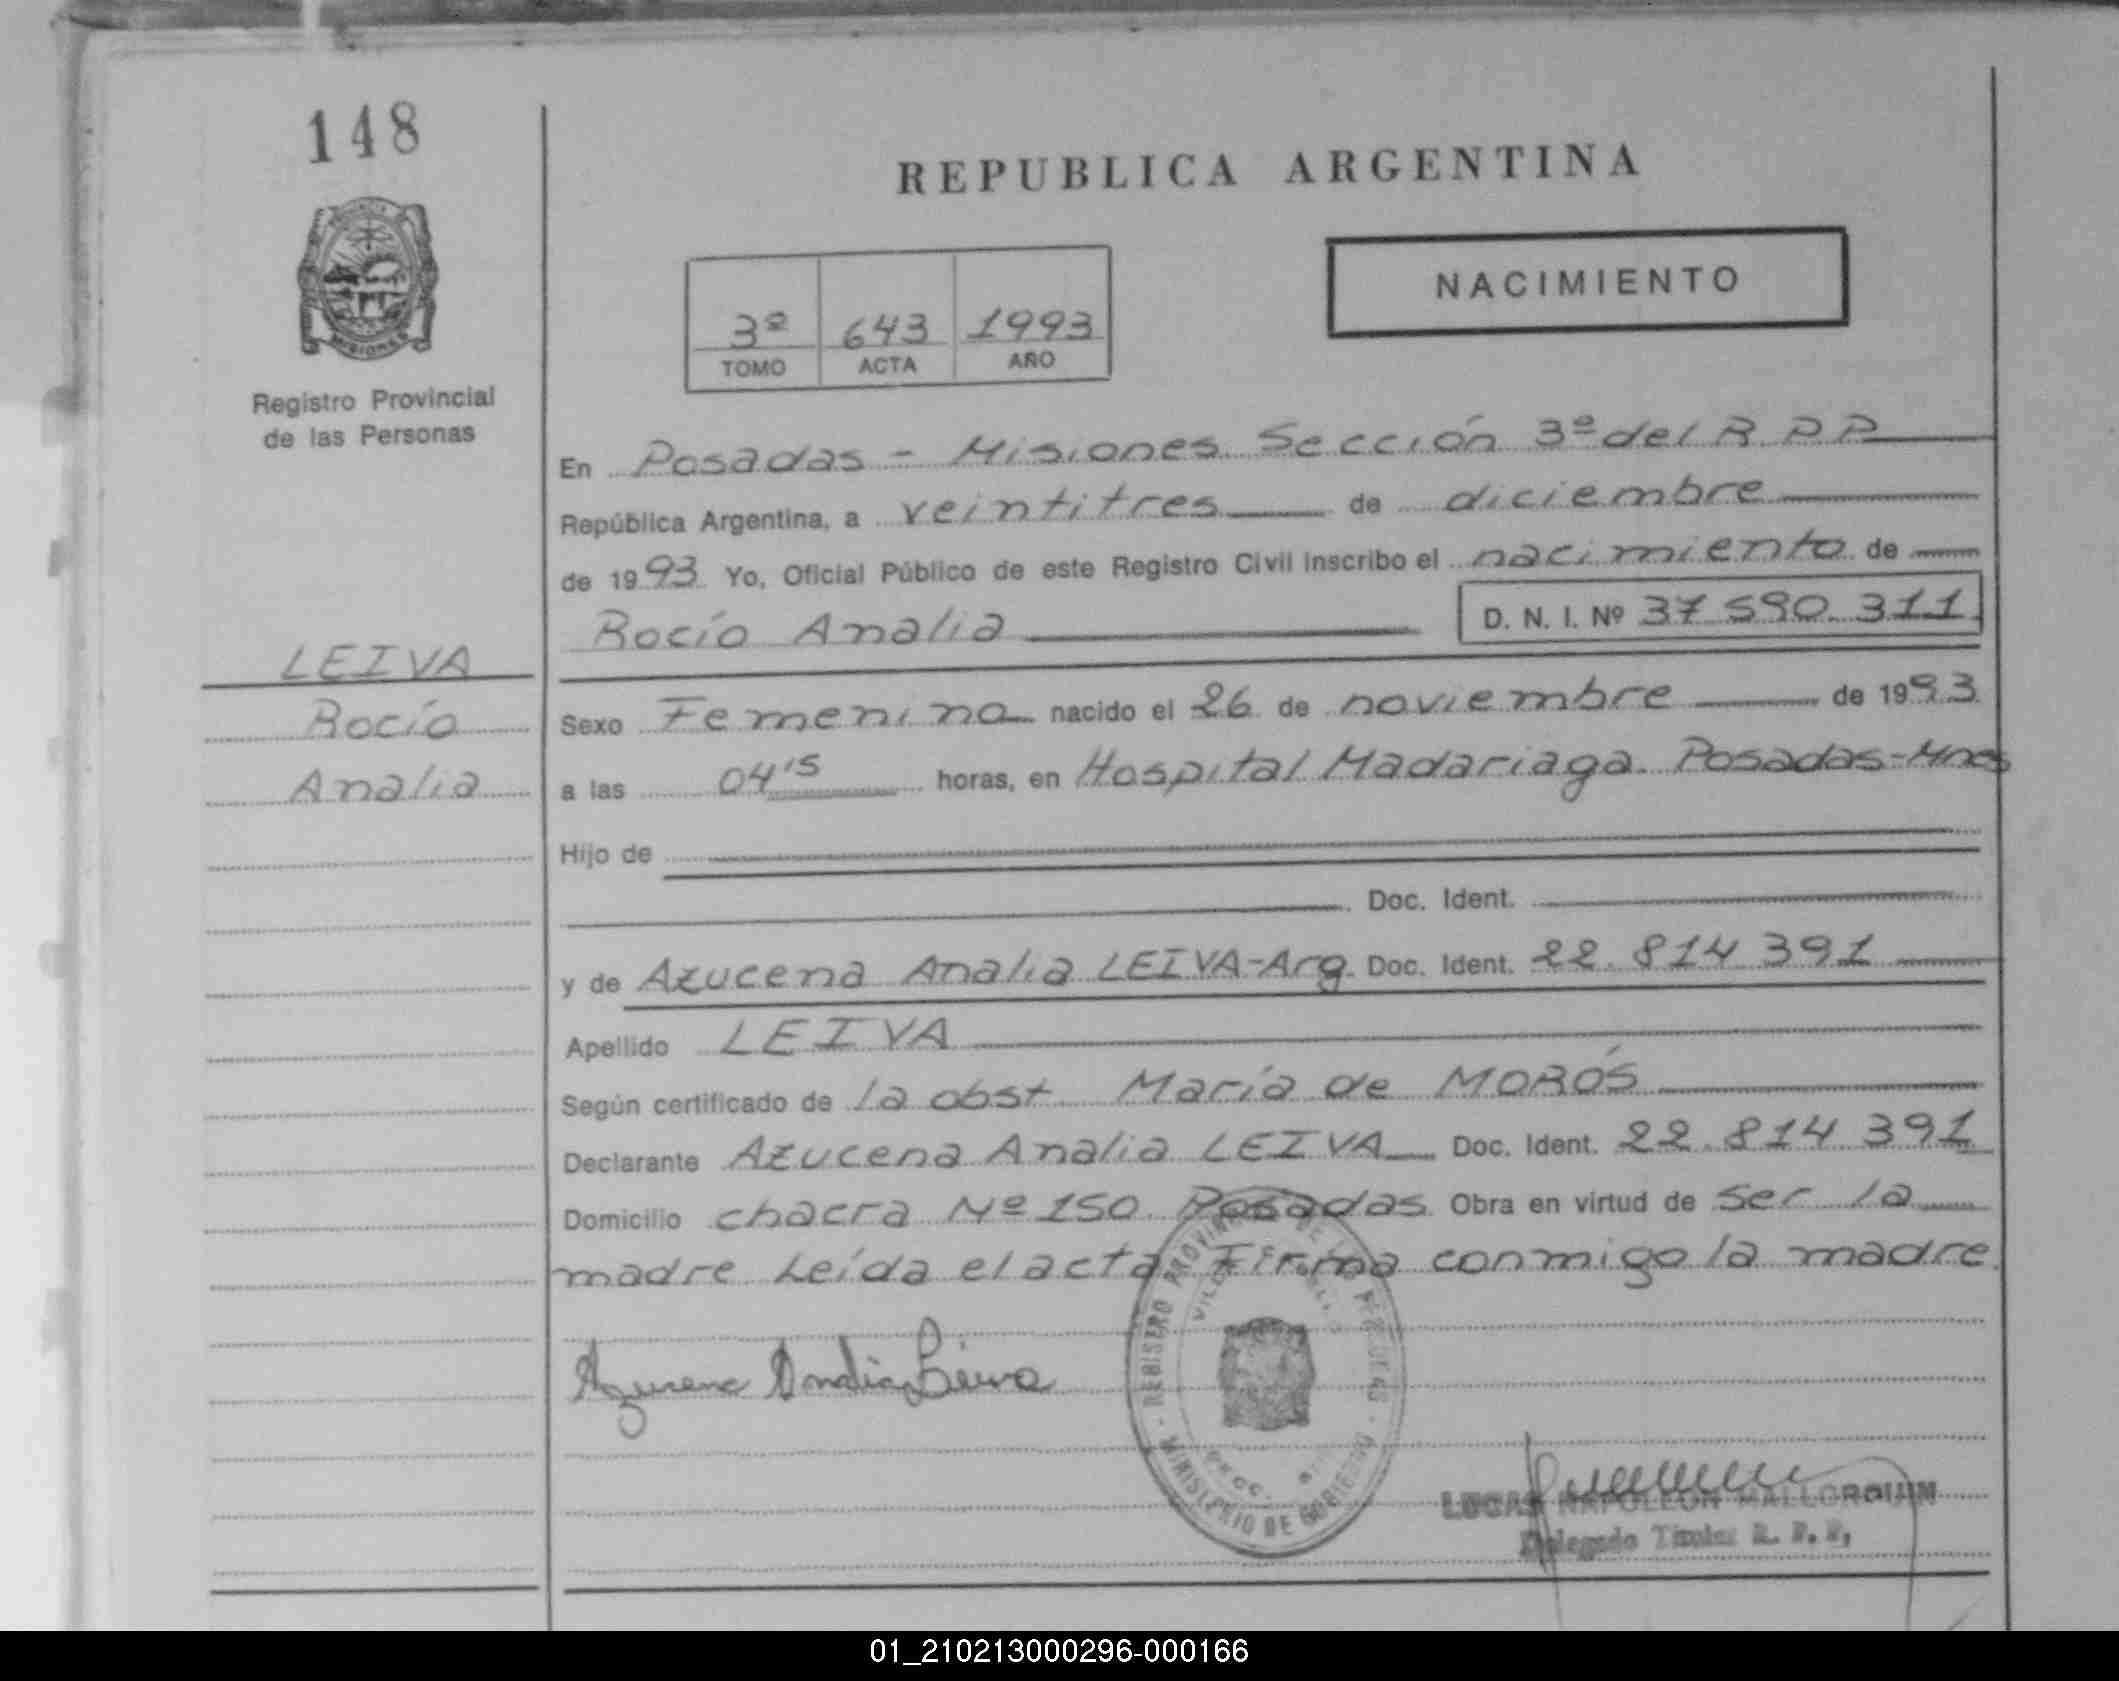 148
REPUBLICA ARGENTINA
NACIMIENTO
3º 643 1993
TOMO ACTA AÑO
MISIONES
Registro Provincial
de las Personas
En Posadas - Misiones Sección 3º del R P P
República Argentina, a veintitres de diciembre
de 1993 Yo, Oficial Público de este Registro Civil inscribo el nacimiento de
Rocío Analia D. N. I. Nº 37 590. 311
LEIVA
Rocío
Analia
Sexo Femenino nacido el 26 de noviembre de 1993
a las 04'15 horas, en Hospital Madariaga. Posadas-Mnes
Hijo de
Doc. Ident.
y de Azucena Analia LEIVA-Arg. Doc. Ident. 22. 814 391
Apellido LEIVA
Según certificado de la obst María de MORÓS
Declarante Azucena Analia LEIVA Doc. Ident. 22. 814 391
Domicilio chacra Nº 150 Posadas Obra en virtud de ser la
madre Leída el acta Firma conmigo la madre.
Azucena Analia Leiva
REGISTRO PROVINCIAL DE LAS PERSONAS
MINISTERIO DE GOBIERNO
LUCAS NAPOLEON MALLORQUIN
Delegado Titular R. P. P,
01_210213000296-000166